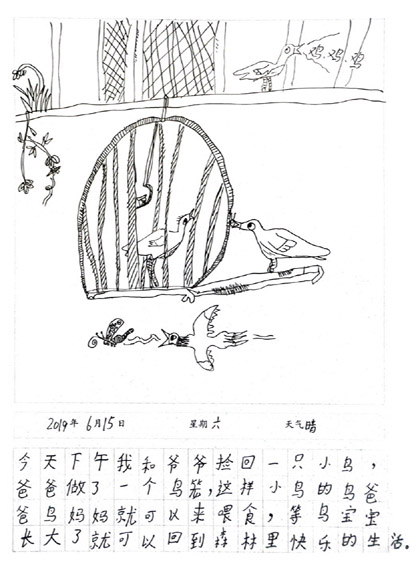 鸡.鸡.鸡
2019年 6月15日 星期六 天气晴
今天下午我和爷爷捡回一只小鸟，
爸爸做了一个鸟笼，这样小鸟的鸟爸
爸鸟妈妈就可以来喂食，等鸟宝宝
长大了就可以回到森林里快乐的生活。